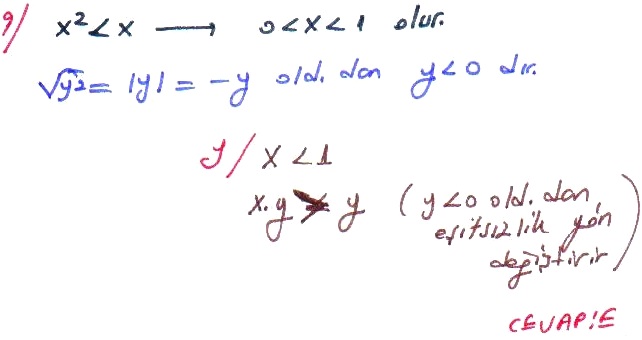 9/ x² < x ⟶ 0 < x < 1 olur.
√y² = |y| = -y old. dan y < 0 dır.
y/ x < 1
x.y > y (y < 0 old. dan,
eşitsizlik yön
değiştirir)
CEVAP:E